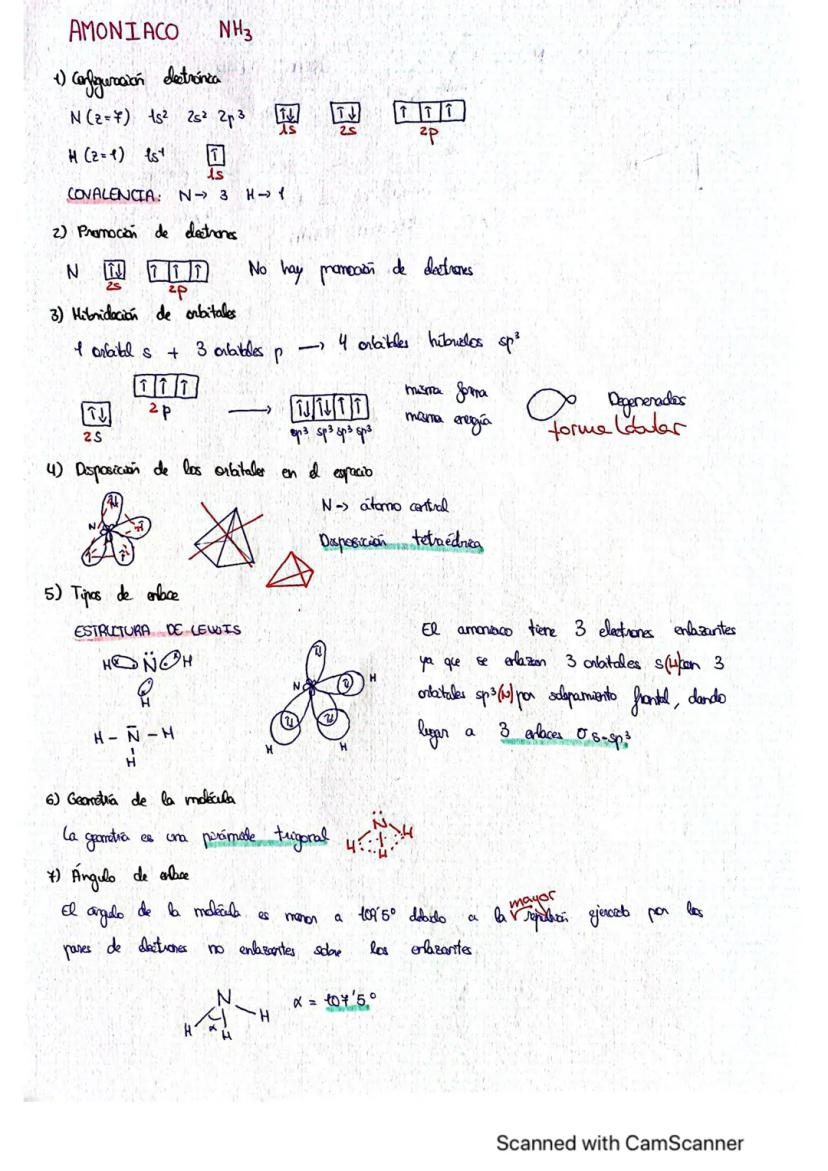 AMONIACO NH3
1) Configuración electrónica
N (z=7) 1s² 2s² 2p³ ↑↓ ↑↓ ↑ ↑ ↑
1s 2s 2p
H (z=1) 1s¹ ↑
1s
COVALENCIA: N→ 3 H→ 1
2) Promoción de electrones
N ↑↓ ↑ ↑ ↑ No hay promoción de electrones
2s 2p
3) Hibridación de orbitales
1 orbital s + 3 orbitales p → 4 orbitales híbridos sp³
↑ ↑ ↑ misma forma Degenerados
↑↓ 2p → ↑↓ ↑↓ ↑ ↑ misma energía forma lobular
2s sp³ sp³ sp³ sp³
4) Disposición de los orbitales en el espacio
N → átomo central
N
Disposición tetraédrica
5) Tipos de enlace
ESTRUCTURA DE LEWIS
El amoniaco tiene 3 electrones enlazantes
H N H
ya que se enlazan 3 orbitales s(H) con 3
H
N H
orbitales sp³(N) por solapamiento frontal, dando
H - N - H
lugar a 3 enlaces σ s-sp³
H
H H
6) Geometría de la molécula
La geometría es una pirámide trigonal
N
H H
H
7) Ángulo de enlace
mayor
El ángulo de la molécula es menor a 109'5° debido a la repulsión ejercida por los
pares de electrones no enlazantes sobre los enlazantes.
N α = 107'5°
H α H H
Scanned with CamScanner